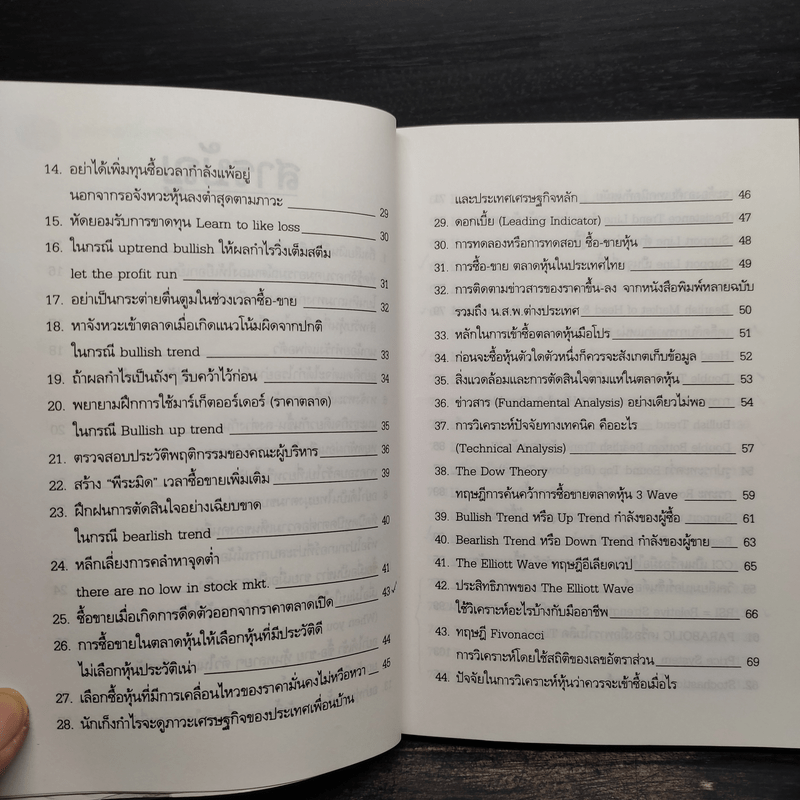 14. อย่าได้เพิ่มทุนซื้อเวลากำลังแพ้อยู่
นอกจากรอจังหวะหุ้นลงต่ำสุดตามภาวะ 29
15. หัดยอมรับการขาดทุน Learn to like loss 30
16. ในกรณี uptrend bullish ให้ผลกำไรวิ่งเต็มสตีม
let the profit run 31
17. อย่าเป็นกระต่ายตื่นตูมในช่วงเวลาซื้อ-ขาย 32
18. หาจังหวะเข้าตลาดเมื่อเกิดแนวโน้มผิดจากปกติ
ในกรณี bullish trend 33
19. ถ้าผลกำไรเป็นถังๆ รีบคว้าไว้ก่อน 34
20. พยายามฝึกการใช้มาร์เก็ตออร์เดอร์ (ราคาตลาด)
ในกรณี Bullish up trend 35
21. ตรวจสอบประวัติพฤติกรรมของคณะผู้บริหาร 36
22. สร้าง "พีระมิด" เวลาซื้อขายเพิ่มเติม 39
23. ฝึกฝนการตัดสินใจอย่างเฉียบขาด
ในกรณี bearlish trend 40
24. หลีกเลี่ยงการคลำหาจุดต่ำ
there are no low in stock mkt. 41
25. ซื้อขายเมื่อเกิดการดีดตัวออกจากราคาตลาดเปิด 43
26. การซื้อขายในตลาดหุ้นให้เลือกหุ้นที่มีประวัติดี
ไม่เลือกหุ้นประวัติเน่า 44
27. เลือกซื้อหุ้นที่มีการเคลื่อนไหวของราคามั่นคงไม่หวือหวา 45
28. นักเก็งกำไรจะดูภาวะเศรษฐกิจของประเทศเพื่อนบ้าน
และประเทศเศรษฐกิจหลัก 46
29. ดอกเบี้ย (Leading Indicator) 47
30. การทดลองหรือการทดสอบ ซื้อ-ขายหุ้น 48
31. การซื้อ-ขาย ตลาดหุ้นในประเทศไทย 49
32. การติดตามข่าวสารของราคาขึ้น-ลง จากหนังสือพิมพ์หลายฉบับ
รวมถึง น.ส.พ.ต่างประเทศ 50
33. หลักในการเข้าซื้อตลาดหุ้นมือโปร 51
34. ก่อนจะซื้อหุ้นตัวใดตัวหนึ่งก็ควรจะสังเกตเก็บข้อมูล 52
35. สิ่งแวดล้อมและการตัดสินใจตามแห่ในตลาดหุ้น 53
36. ข่าวสาร (Fundamental Analysis) อย่างเดียวไม่พอ 54
37. การวิเคราะห์ปัจจัยทางเทคนิค คืออะไร
(Technical Analysis) 57
38. The Dow Theory
ทฤษฎีการค้นคว้าการซื้อขายตลาดหุ้น 3 Wave 59
39. Bullish Trend หรือ Up Trend กำลังของผู้ซื้อ 61
40. Bearlish Trend หรือ Down Trend กำลังของผู้ขาย 63
41. The Elliott Wave ทฤษฎีอีเลียดเวป 65
42. ประสิทธิภาพของ The Elliott Wave
ใช้วิเคราะห์อะไรบ้างกับมืออาชีพ 66
43. ทฤษฎี Fivonacci
การวิเคราะห์โดยใช้สถิติของเลขอัตราส่วน 69
44. ปัจจัยในการวิเคราะห์หุ้นว่าควรจะเข้าซื้อเมื่อไร